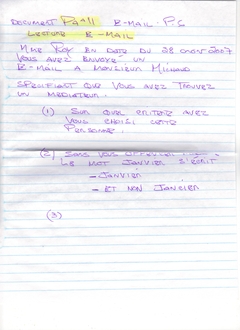 DOCUMENT PA-11 E-MAIL. P.S
LECTURE E-MAIL
MME ROY EN DATE DU 28 2007
VOUS AVEZ ENVOYÉ UN
E-MAIL A MONSIEUR MICHAUD
SPÉCIFIANT QUE VOUS AVEZ TROUVEZ
UN MEDIATEUR.
(1) SUR QUEL CRITERE AVEZ
VOUS CHOISI CETTE
PERSONNE.
(2) SANS VOUS OFFENCER
LE MOT JANVIER S'ÉCRIT
- JANVIER
- ET NON JANCIER
(3)